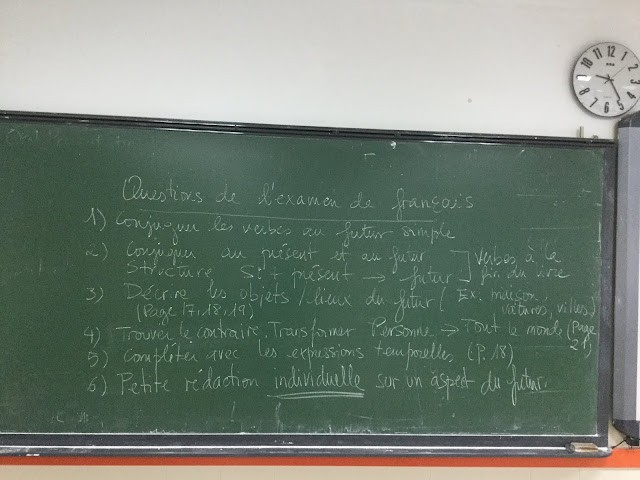 Questions de d'examen de français
1) Conjuguer les verbes au futur simple
2) Conjuguer au présent et au futur ] verbes à la
Structure Si + présent → futur ] fin du livre
3) Décrire les objets / lieux du futur ( Ex. maison,
(Page 17, 18, 19) voitures, villes)
4) Trouver le contraire. Transformer Personne → Tout le monde (Page
21)
5) Compléter avec les expressions temporelles. (P. 18)
6) Petite rédaction individuelle sur un aspect du futur.
12
1
2
3
4
5
6
7
8
9
10
11